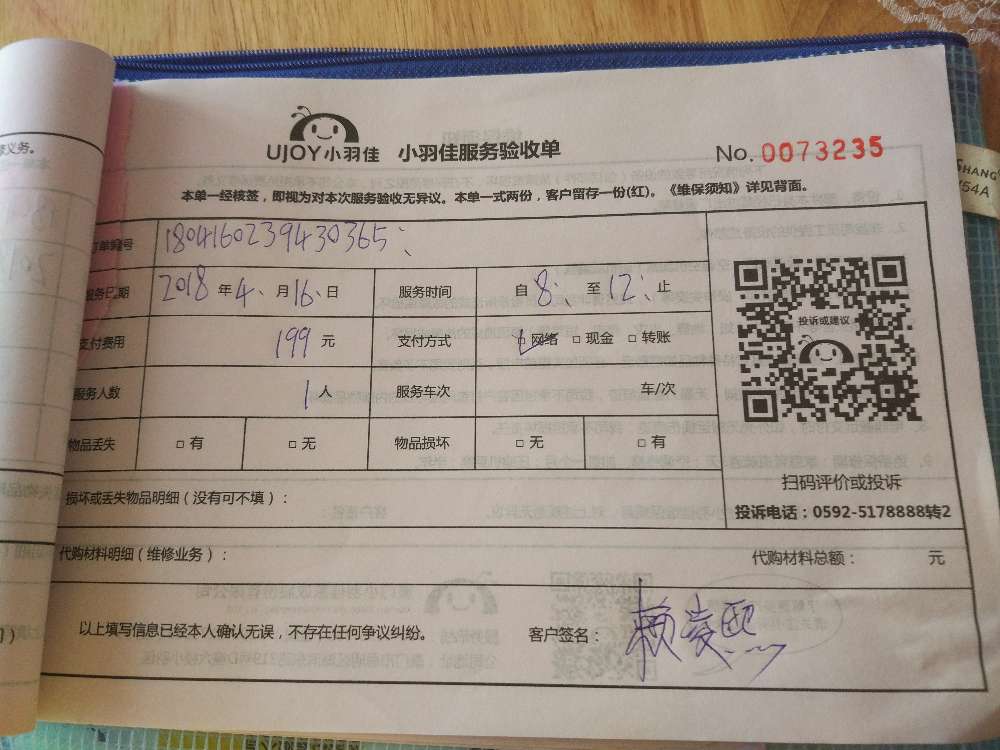 修义务。
UJOY小羽佳 小羽佳服务验收单
No. 0073235
本单一经核签，即视为对本次服务验收无异议。本单一式两份，客户留存一份(红)。《维保须知》详见背面。
订单编号 1804160239430365
服务日期 2018 年 4 月 16 日 服务时间 自 8 至 12 止
支付费用 199 元 支付方式 □ 网络 □ 现金 □ 转账
服务人数 1 人 服务车次 车/次
物品丢失 □ 有 □ 无 物品损坏 □ 无 □ 有
投诉或建议
扫码评价或投诉
投诉电话：0592-5178888转2
损坏或丢失物品明细（没有可不填）：
代购材料明细（维修业务）： 代购材料总额： 元
以上填写信息已经本人确认无误，不存在任何争议纠纷。 客户签名： 赖凌熙
SHANG
54A